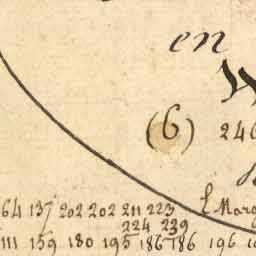 en
(6) 246
64 137 202 202 211 223
224 239
111 159 180 195 186 186 196